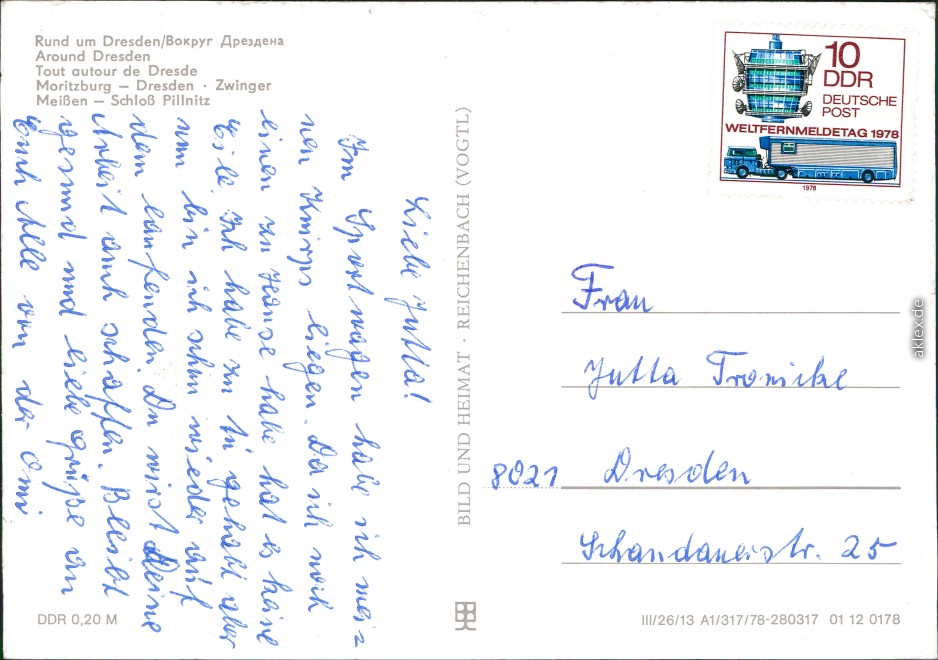 Rund um Dresden/Вокруг Дрездена
Around Dresden
Tout autour de Dresde
Moritzburg – Dresden · Zwinger
Meißen – Schloß Pillnitz
Liebe Jutta!
Im Sportwagen habe ich mei-
nen Knirps liegen. Da ich noch
einen zu Hause habe hat es keine
Eile. Ich habe zu tu gehabt aber
nun bin ich schon wieder auf
dem laufenden Du wirst Deine
Arbeit auch schaffen. Bleibt
gesund und liebe Grüße an
Euch Alle von der Omi
DDR 0,20 M
BILD UND HEIMAT · REICHENBACH (VOGTL)
10
DDR
DEUTSCHE
POST
WELTFERNMELDETAG 1978
1978
Frau
Jutta Tronicke
8021 Dresden
Schandauerstr. 25
III/26/13 A1/317/78-280317 01 12 0178
aklex.de